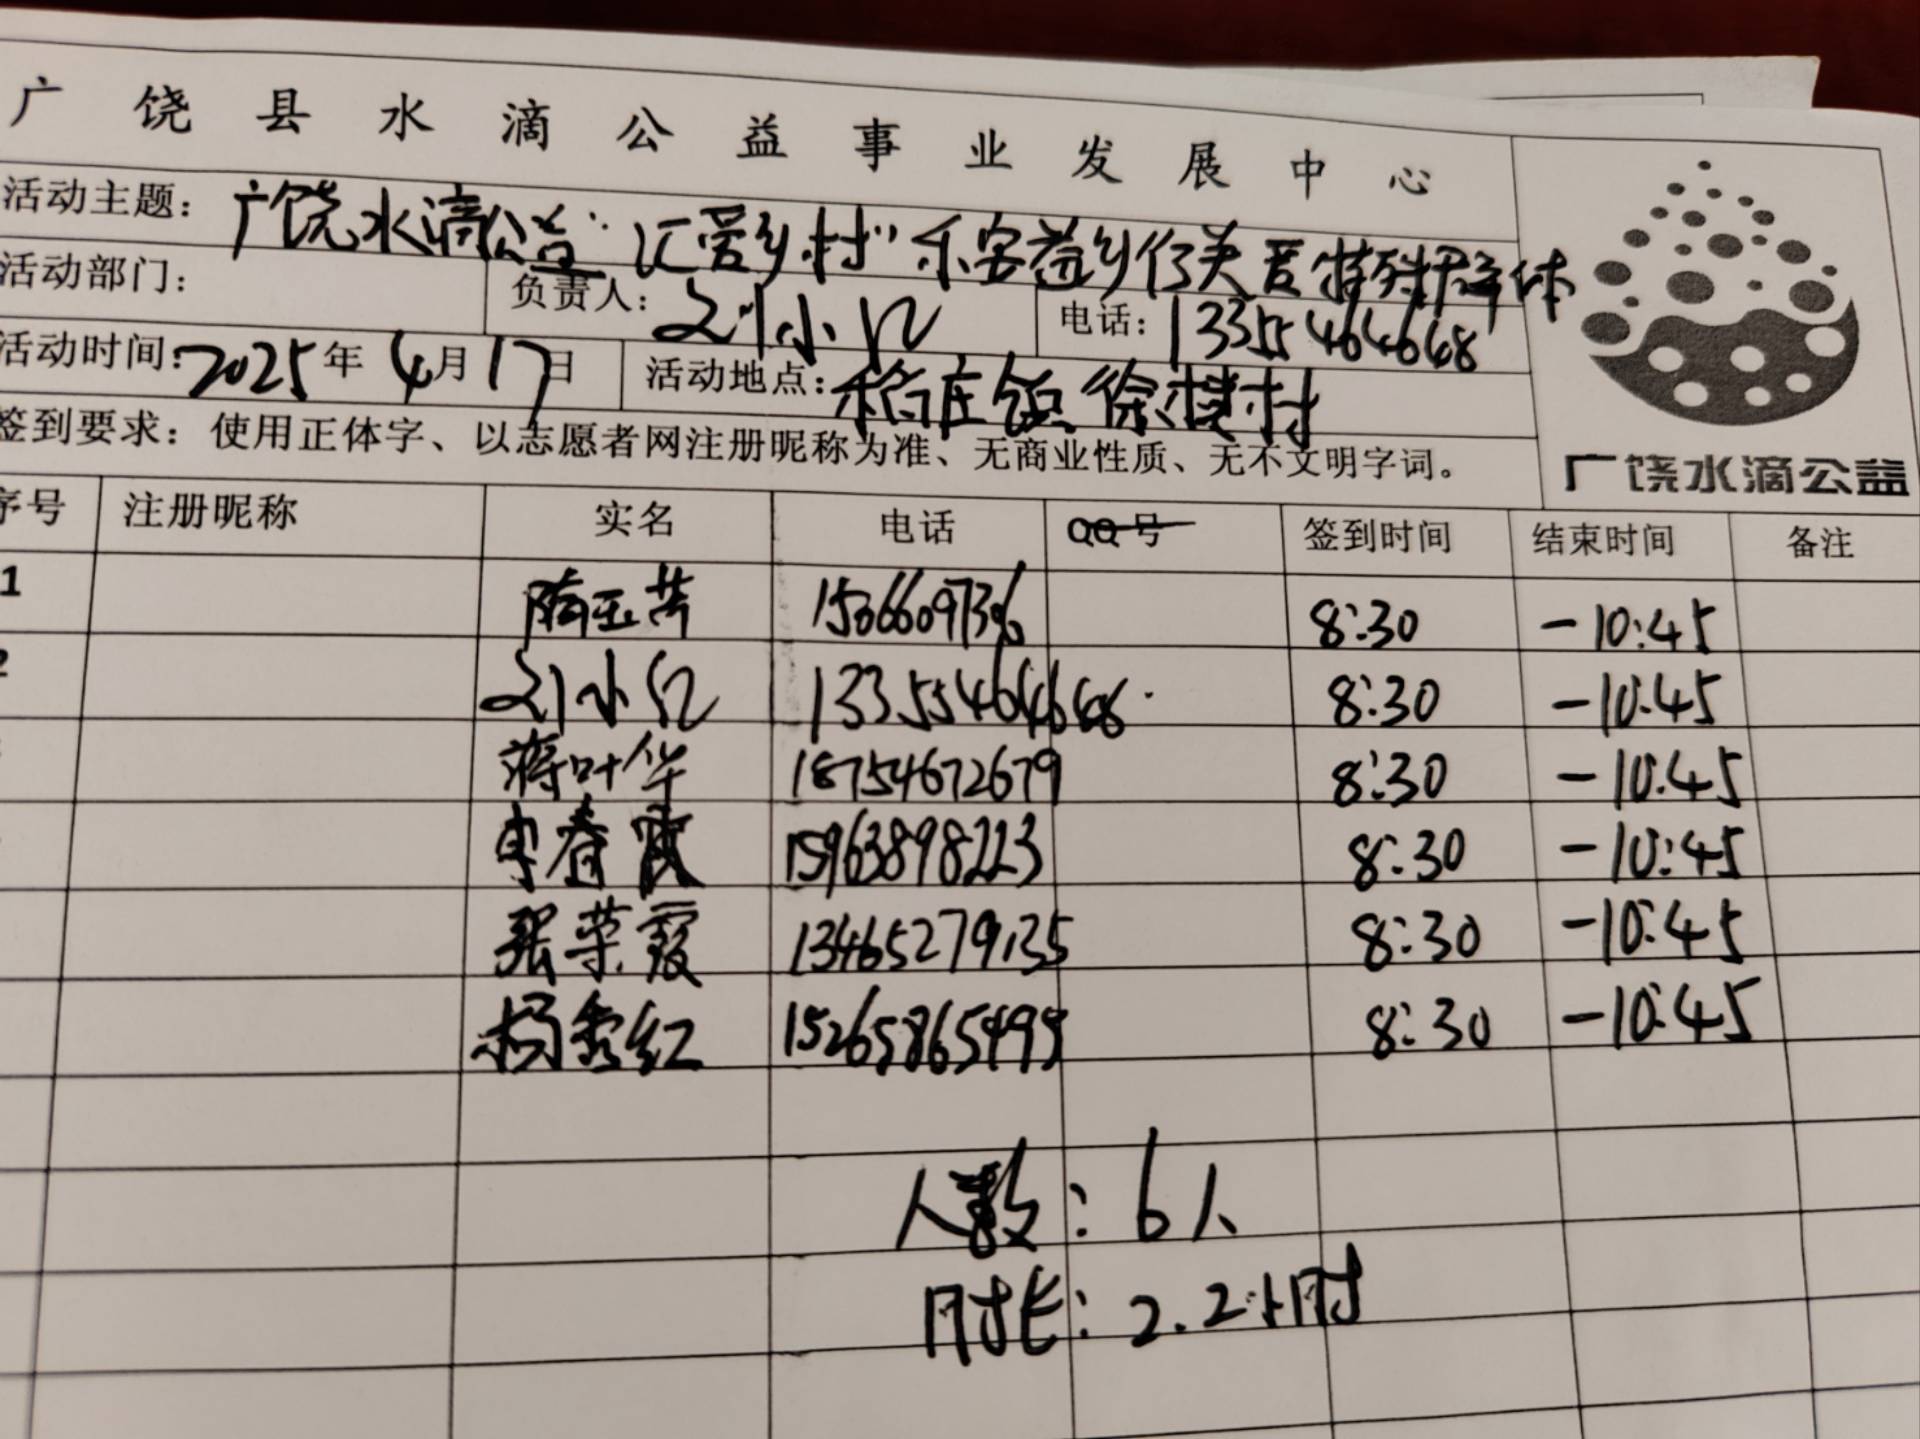 广饶县水滴公益事业发展中心
活动主题：广饶水滴公益"汇爱乡村"乐安益乡行关爱特殊群体
活动部门： 负责人：刘小红 电话：13355464668
活动时间：2025年4月17日 活动地点：稻庄镇徐楼村
签到要求：使用正体字、以志愿者网注册昵称为准、无商业性质、无不文明字词。
广饶水滴公益
序号 注册昵称 实名 电话 QQ号 签到时间 结束时间 备注
1 隋玉芹 8:30 -10:45
2 刘小红 13355464668 8:30 -10:45
蒋叶华 18754672679 8:30 -10:45
李春霞 15963898223 8:30 -10:45
张荣霞 13465279135 8:30 -10:45
杨秀红 15265865495 8:30 -10:45
人数：6人
时长：2.2小时